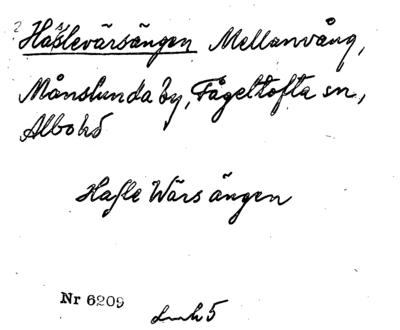 Hasslevärsängen Mellanvång,
Månslunda by, Fågeltofta sn,
Albo hd
Hasle Wärs ängen
Nr 6209